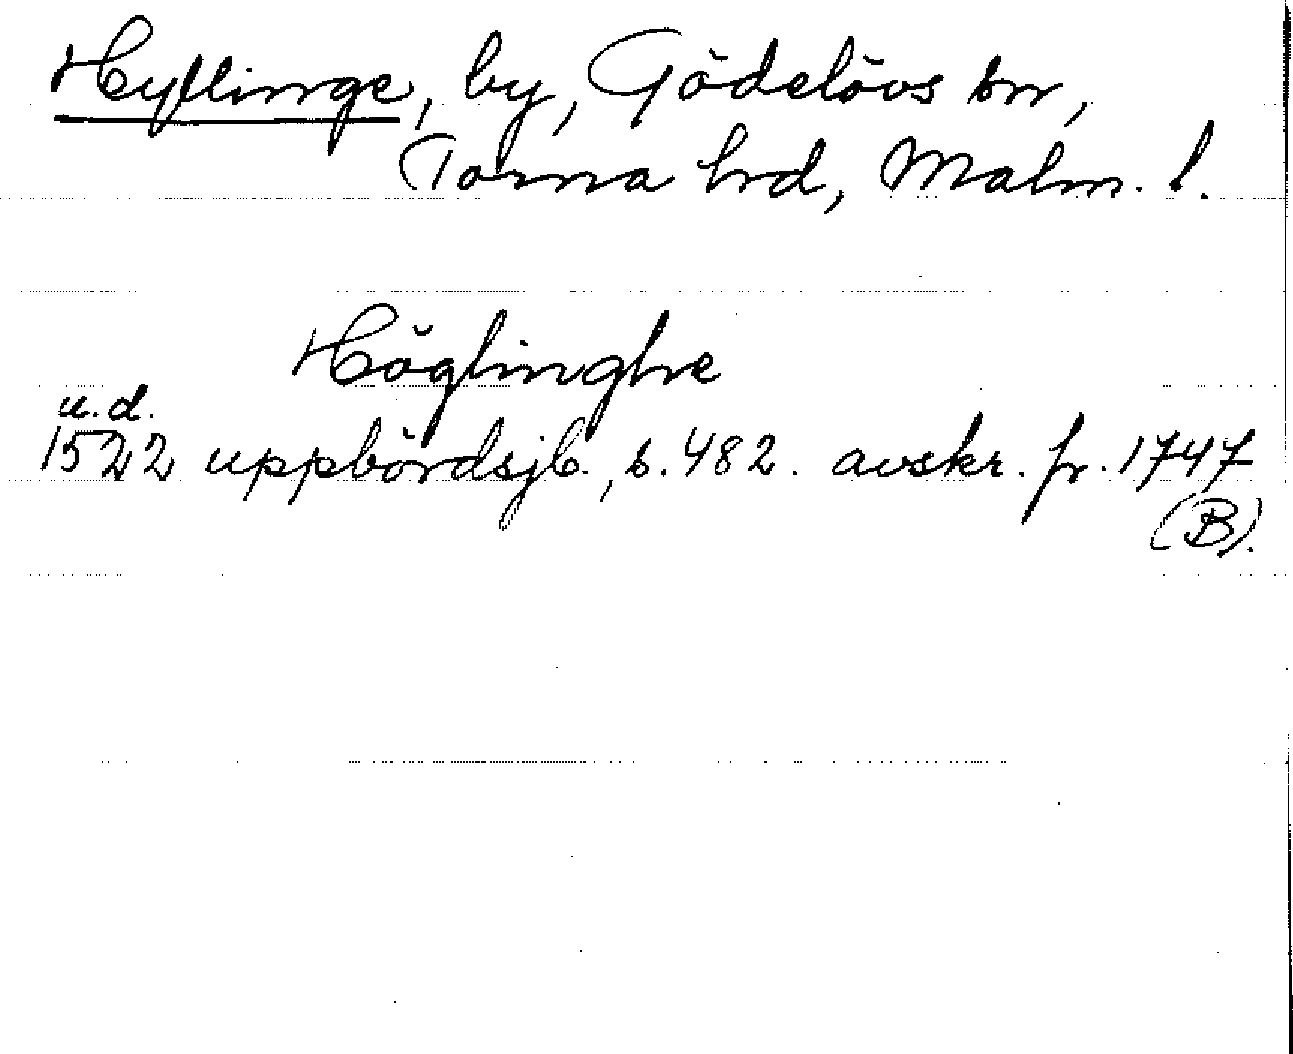 Hyllinge, by, Gödelövs sn,
Torna hrd, Malm. l.
Höglinghe
u.d.
1522 uppbördsjb., s. 482. avskr. fr. 1747
(B).